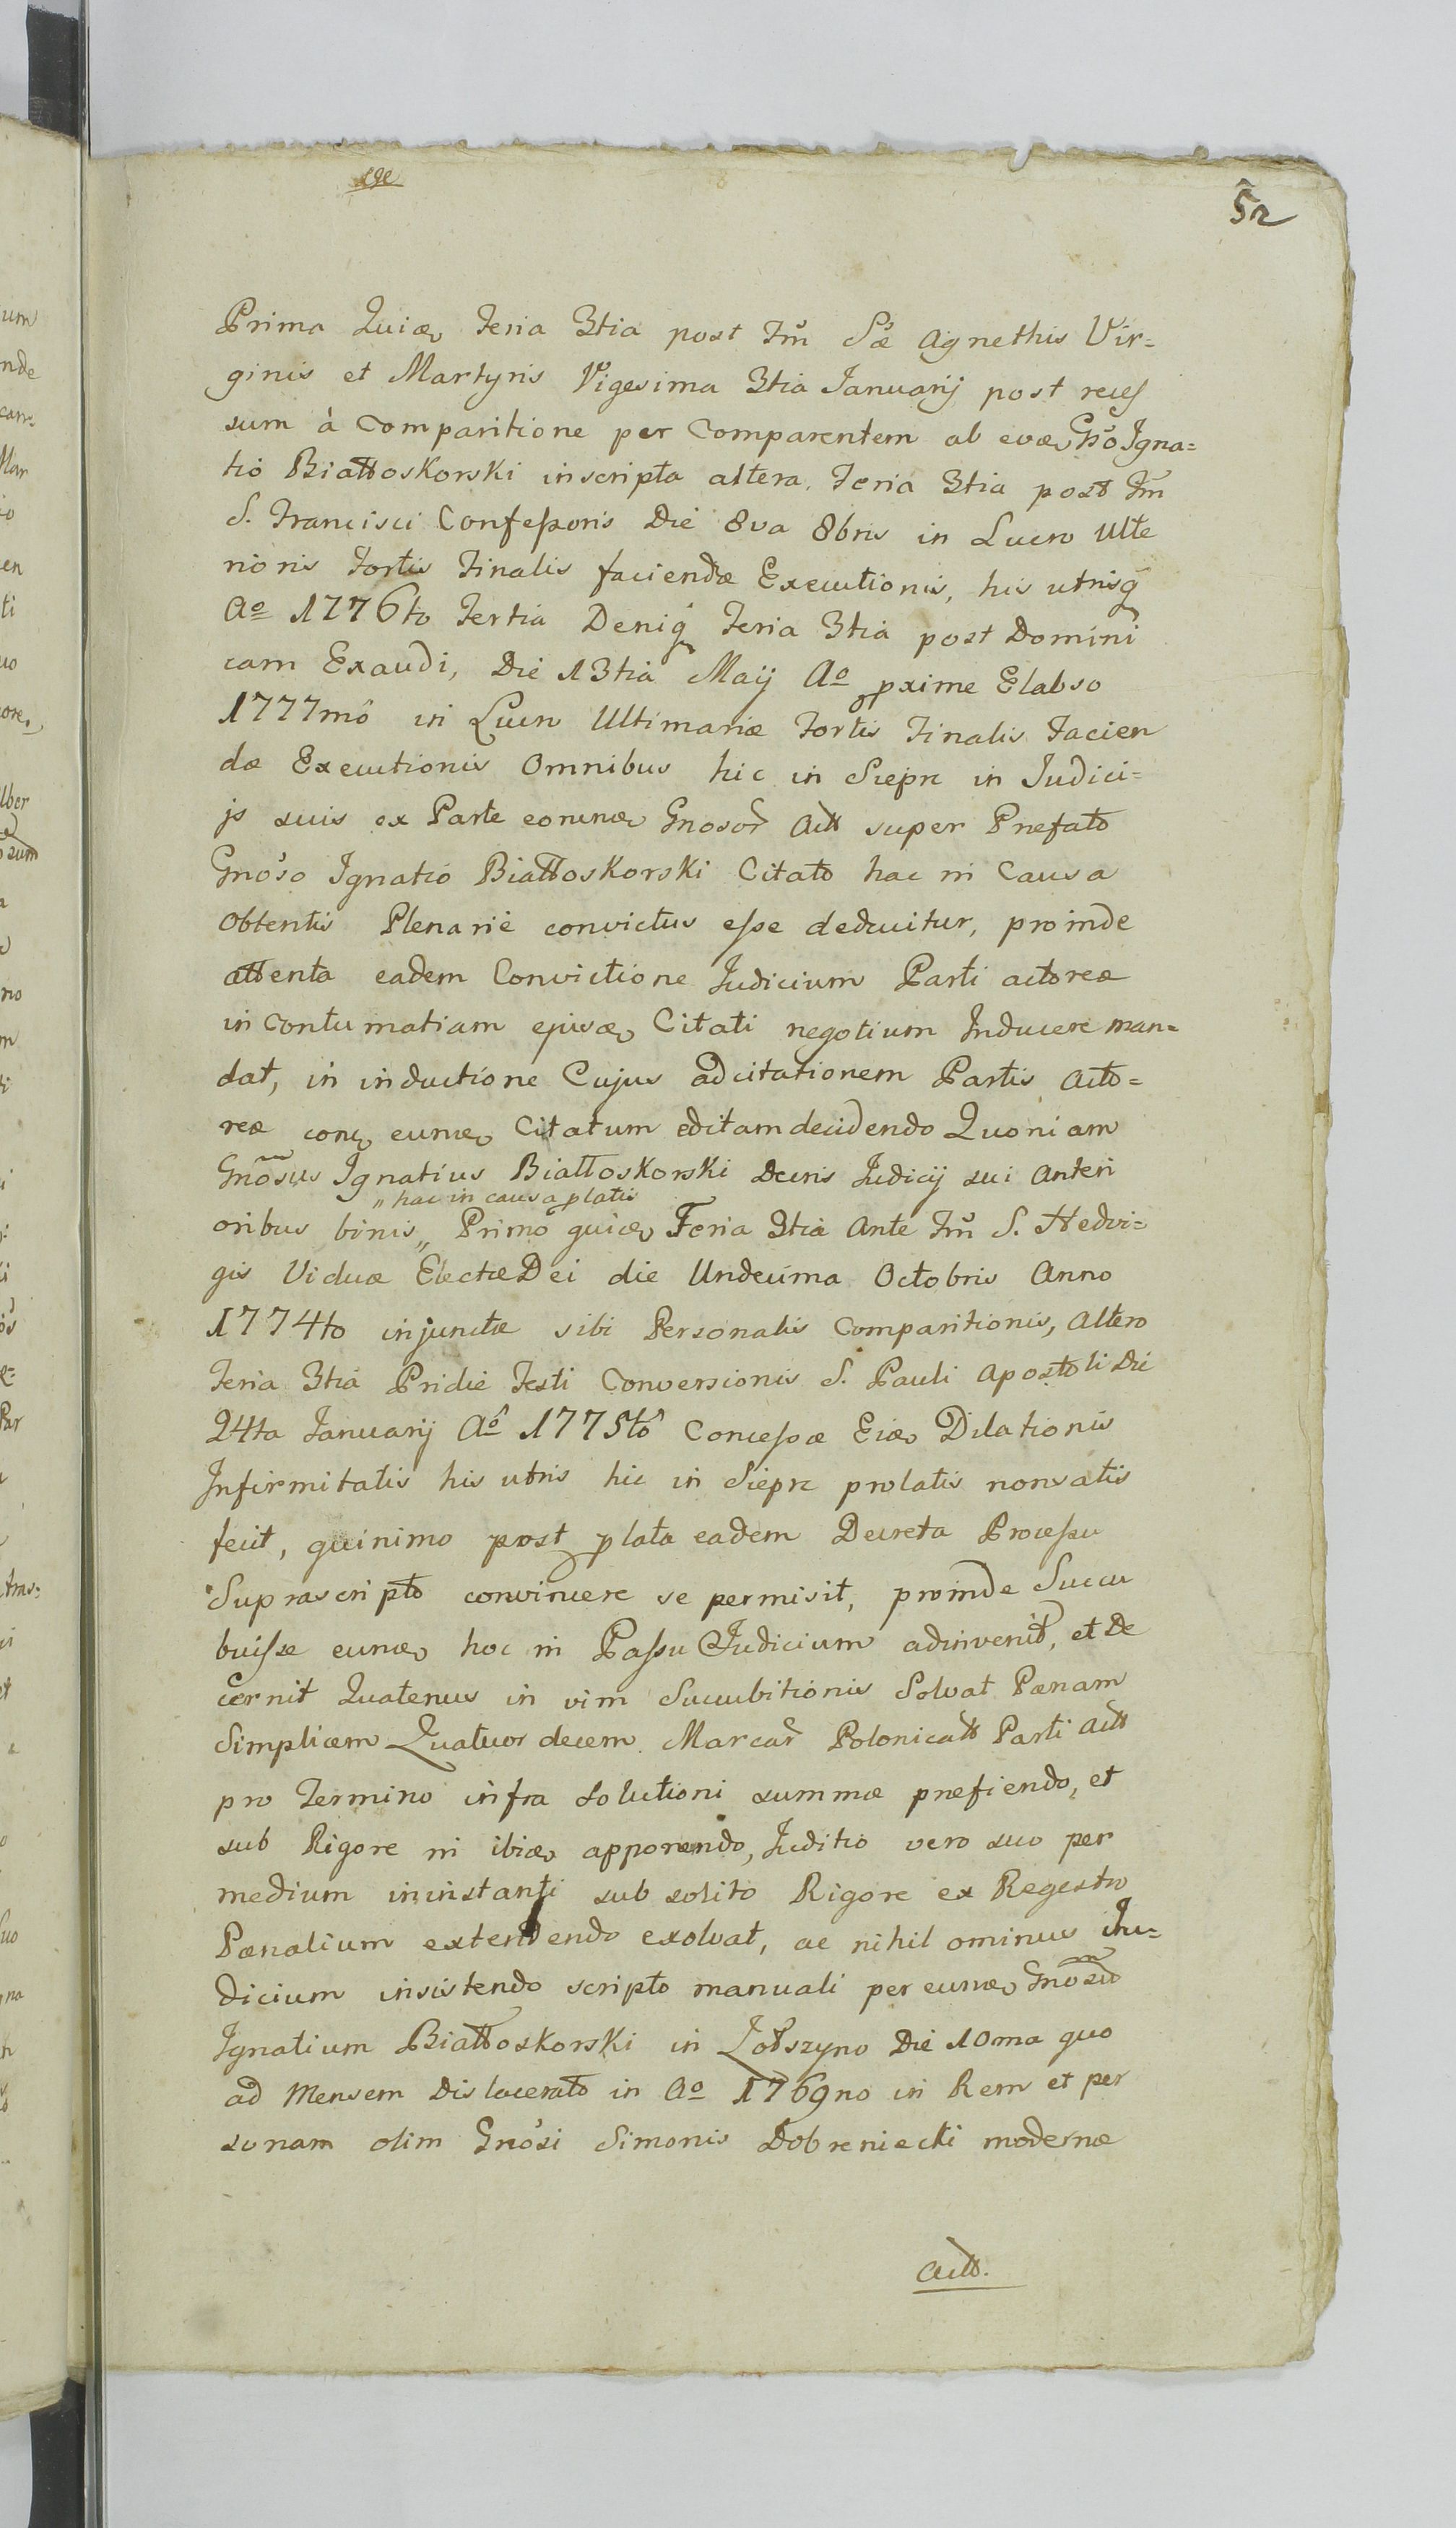 52
Prima Quidē Feria 3tia post Fm̃ Sæ Agnethis Vir=
ginis et Martyris Vigesima 3tia Januarij post reces
sum à Comparitione per Comparentem ab eodē Gnõso Igna=
tio Białłoskorski inscripta altera Feria 3tia post Fm̃
S. Francisci Confessoris Die 8va 8bris in Lucro Ulte
rioris Fortis Finalis faciendæ Executionis, his utrisq̃
Aõ 1776to Tertia Deniq̃ Feria 3tia post Domini
cam Exaudi, Die 13tia Maij Aõ pxime Elabso
1777mô in Lucro Ultimariæ Fortis Finalis Facien
dæ Executionis Omnibus hic in Sieprc in Judici=
js suis ex Parte eorundē Gnosor̃ Actt super Prefato
Gnõso Ignatio Białłoskorski Citato hac in Causa
obtentis Plenarié convictus esse deducitur, proinde
attenta eadem Convictione Judicium Parti actoreæ
in Contumatiam ejusdē Citati negotium Inducere man=
dat, in inductione Cujus adcitationem Partis Acto=
reæ con̄ eundē Citatum editam decidendo Quoniam
Gnõsus Ignatius Białłoskorski Decris Judicij sui Anteri
„hac in causa platis
oribus binis„ Primo quidē Feria 3tia Ante Fm̃ S. Hedvi=
gis Viduæ Electæ Dei die Undecima Octobris Anno
1774to injunctæ sibi Personalis Comparitionis, Altero
Feria 3tia Pridie Festi Conversionis S. Pauli Apostoli Die
24ta Januarij Aõ 1775tô Concessæ Eidē Dilationis
Infirmitatis his utris hic in Sieprc prolatis non satis
fecit, quinimo post plata eadem Decreta Processu
Suprascripto convincere se permisit, proinde Succu
buisse eundē hoc in Passu Judicium adinvenit, et De
cernit Quatenus in vim Succubitionis Solvat Pænam
Simplicem Quatuor decem Marcar̃ Polonicatt Parti Actt
pro Termino infra Solutioni summæ prefiendo, et
sub Rigore in ibidē apponendo, Juditio vero suo per
medium ininstanti sub solito Rigore ex Regestro
Pænalium extendendo exolvat, ac nihil ominus Ju=
dicium insistendo scripto manuali per eundē Gnõsũ
Ignatium Białłoskorski in Die 10ma quo
ad Mensem Dislacerato in Aõ 1769no in Rem et per
sonam olim Gnõsi Simonis Dobreniecki modernæ
Actt.